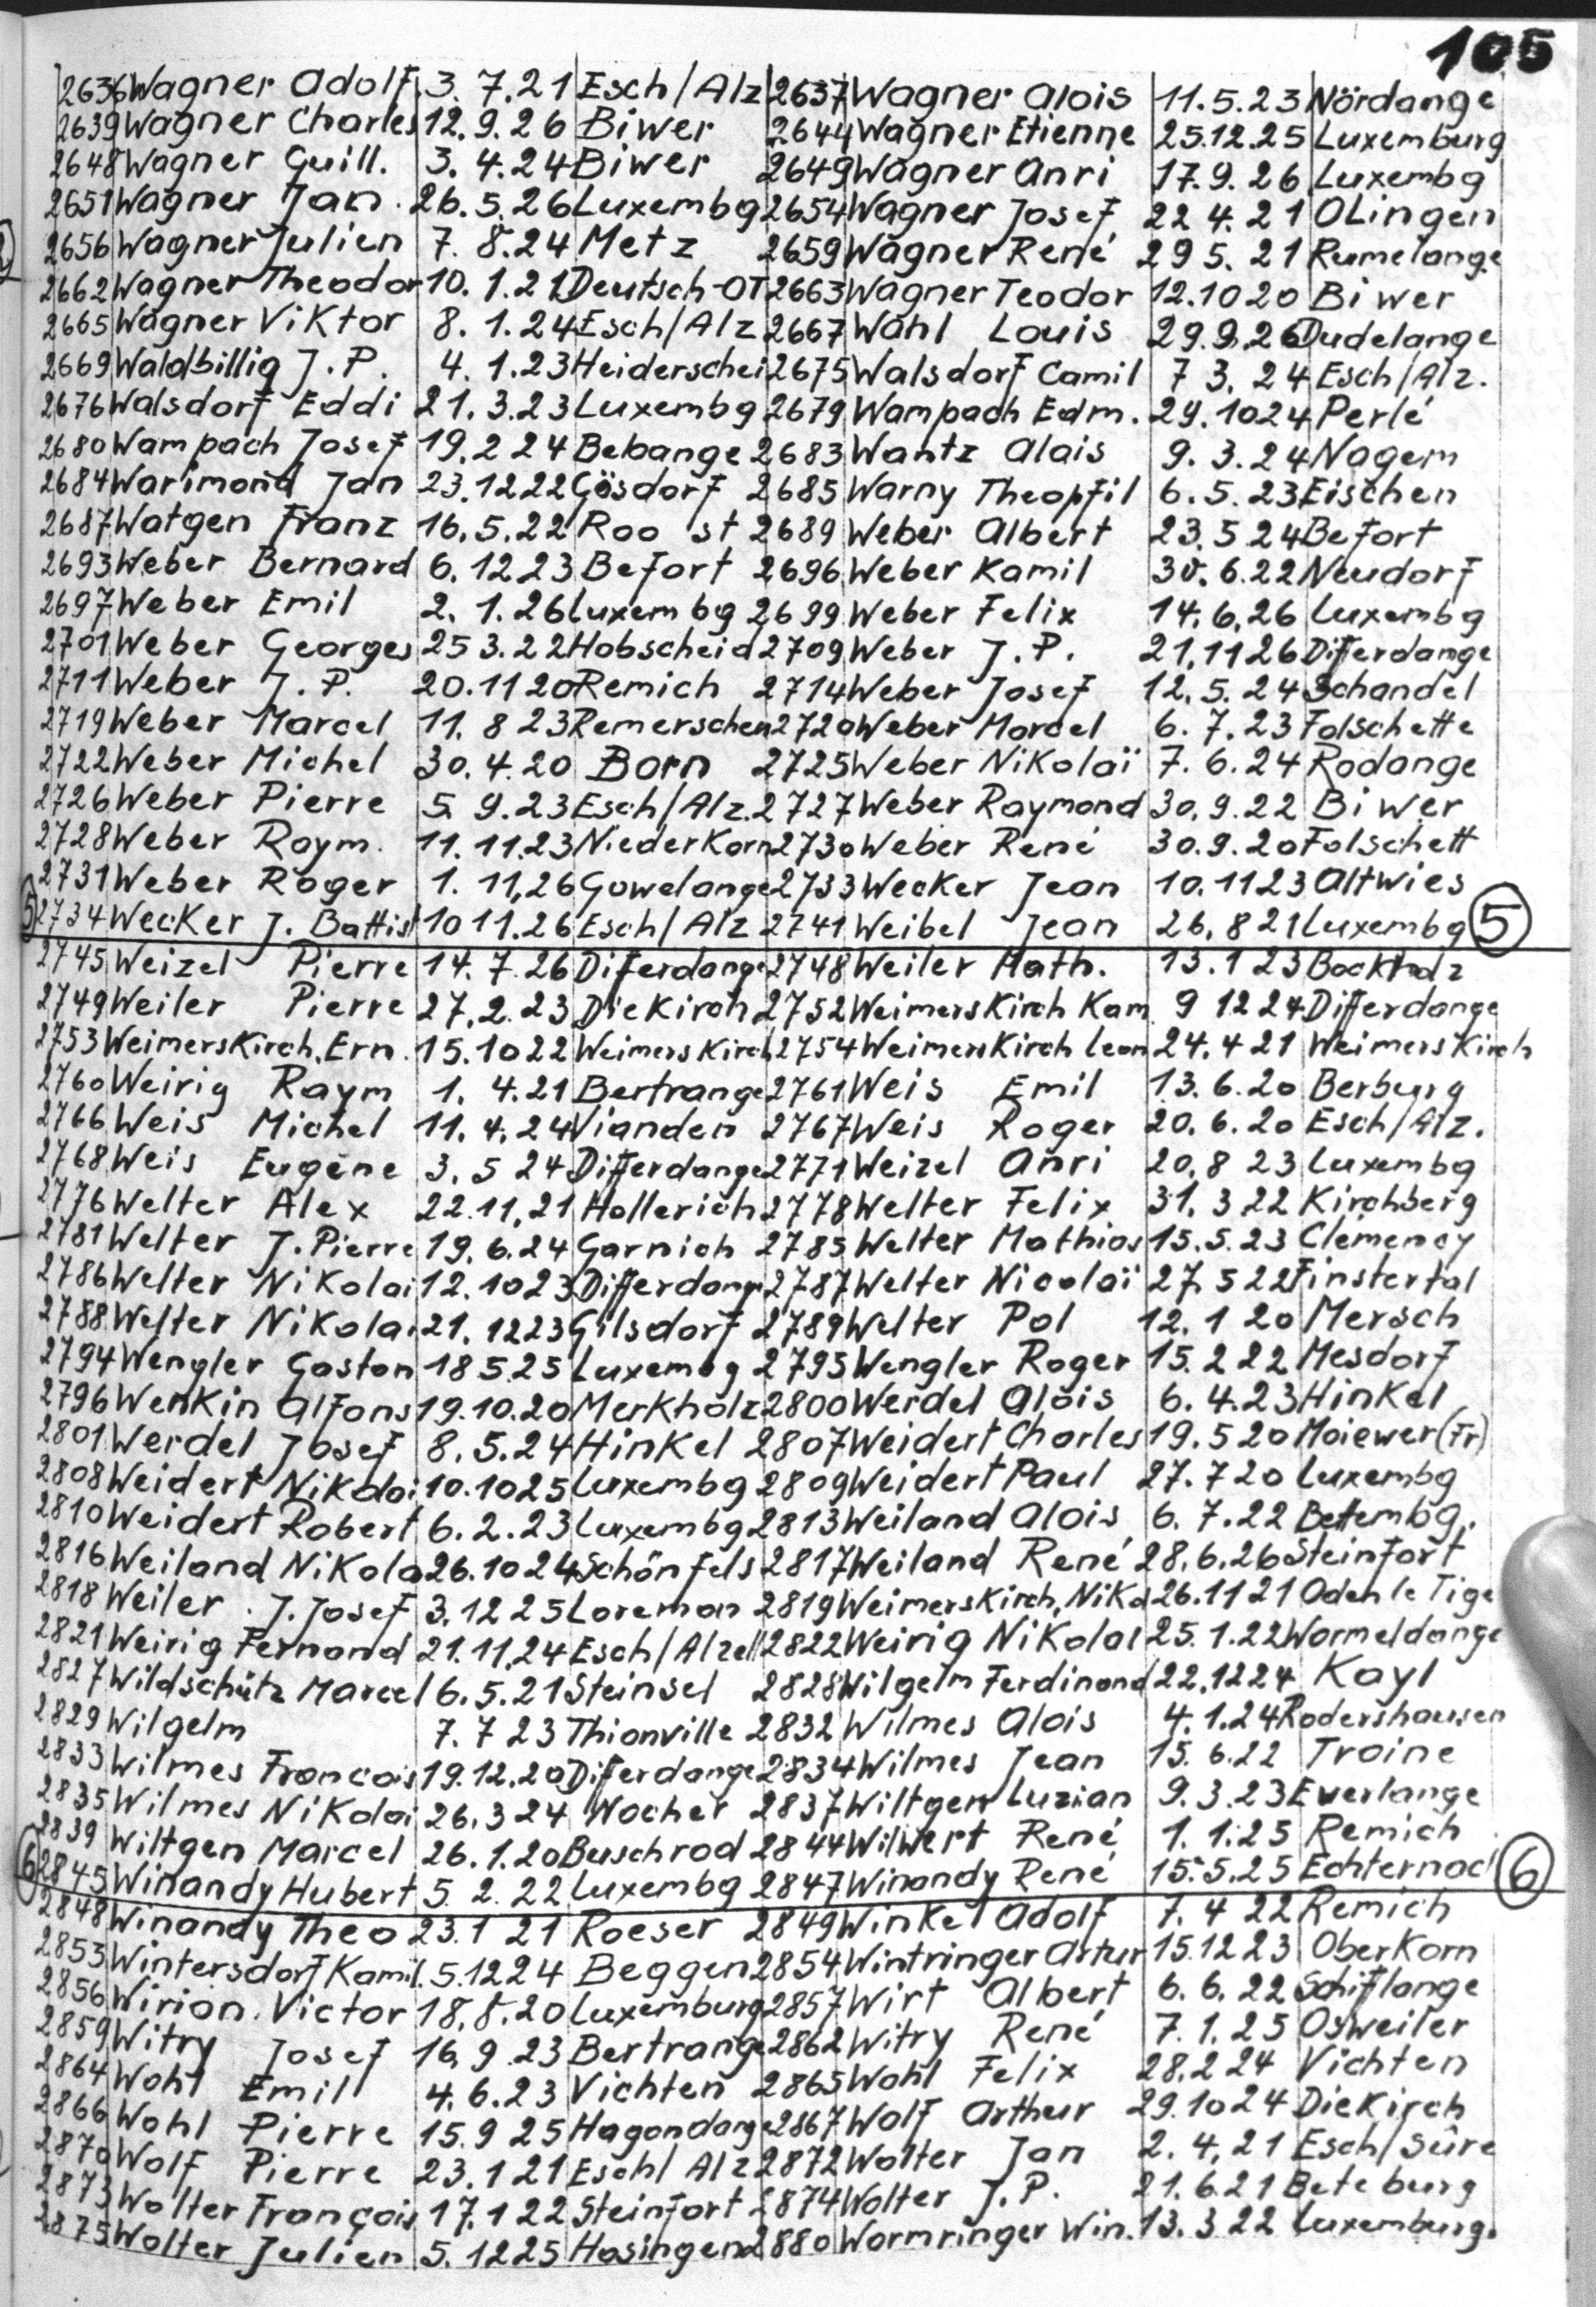 105
2636 Wagner Adolf 3. 7.21 Esch/Alz 2637 Wagner Alois 11.5.23 Nördange
2639 Wagner Charles 12.9.26 Biwer 2644 Wagner Etienne 25.12.25 Luxemburg
2648 Wagner Guill. 3. 4.24 Biwer 2649 Wagner Anri 17.9.26 Luxembg
2651 Wagner Jan. 26.5.26 Luxembg 2654 Wagner Josef 22 4.21 Olingen
2656 Wagner Julien 7. 8.24 Metz 2659 Wagner René 29 5.21 Rumelange
2662 Wagner Theodor 10. 1.21 Deutsch-OT 2663 Wagner Teodor 12.10 20 Biwer
2665 Wagner Viktor 8. 1.24 Esch/Alz 2667 Wahl Louis 29.9.26 Dudelange
2669 Waldbillig J.P. 4. 1.23 Heiderschei 2675 Walsdorf Camil 7 3. 24 Esch/Alz.
2676 Walsdorf Eddi 21.3.23 Luxembg 2679 Wampach Edm. 29.10 24 Perlé
2680 Wampach Josef 19.2 24 Bebange 2683 Wantz Alais 9. 3.24 Nagem
2684 Warimond Jan 23.12 22 Gösdorf 2685 Warny Theopfil 6.5.23 Eischen
2687 Watgen Franz 16.5.22 Roo st 2689 Weber Albert 23.5 24 Befort
2693 Weber Bernard 6. 12 23 Befort 2696 Weber Kamil 30.6.22 Neudorf
2697 Weber Emil 2. 1.26 Luxembg 2699 Weber Felix 14.6.26 Luxembg
2701 Weber Georges 25 3.22 Hobscheid 2709 Weber J.P. 21.11 26 Differdange
2711 Weber J.P. 20.11 20 Remich 2714 Weber Josef 12.5.24 Schandel
2719 Weber Marcel 11. 8 23 Remerschen 2720 Weber Marcel 6. 7.23 Folschette
2722 Weber Michel 30.4.20 Born 2725 Weber Nikolaï 7. 6.24 Rodange
2726 Weber Pierre 5. 9.23 Esch/Alz. 2727 Weber Raymond 30.9.22 Biwer
2728 Weber Raym. 11.11.23 Niederkorn 2730 Weber René 30.9.20 Folschett
2731 Weber Roger 1. 11.26 Gowelange 2733 Wecker Jean 10.11 23 Altwies
5 2734 Wecker J. Battist 10 11.26 Esch/Alz 2741 Weibel Jean 26.8 21 Luxembg 5
2745 Weizel Pierre 14.7.26 Diferdange 2748 Weiler Math. 13.1 23 Bockholz
2749 Weiler Pierre 27.2.23 Diekirch 2752 Weimerskirch Kam 9 12 24 Differdange
2753 Weimerskirch, Ern. 15.10 22 Weimerskirch 2754 Weimerskirch Leon 24.4 21 Weimerskirch
2760 Weirig Raym 1. 4.21 Bertrange 2761 Weis Emil 13.6.20 Berburg
2766 Weis Michel 11.4.24 Vianden 2767 Weis Roger 20.6.20 Esch/Alz.
2768 Weis Eugène 3. 5 24 Differdange 2771 Weizel Anri 20.8 23 Luxembg
2776 Welter Alex 22.11.21 Hollerich 2778 Welter Felix 31.3 22 Kirchberg
2781 Welter J. Pierre 19.6.24 Garnich 2785 Welter Mathias 15.5.23 Clemency
2786 Welter Nikolai 12.10 23 Differdang 2787 Welter Nicolaï 27.5 22 Finstertal
2788 Welter Nikolai 21.12 23 Gilsdorf 2789 Welter Pol 12.1 20 Mersch
2794 Wengler Gaston 18 5 25 Luxembg 2795 Wengler Roger 15.2 22 Mesdorf
2796 Wenkin Alfons 19.10.20 Merkholz 2800 Werdel Alois 6. 4.23 Hinkel
2801 Werdel Josef 8. 5.24 Hinkel 2807 Weidert Charles 19.5 20 Moiewer (Fr)
2808 Weidert Nikolai 10.10 25 Luxembg 2809 Weidert Paul 27.7 20 Luxembg
2810 Weidert Robert 6. 2.23 Luxembg 2813 Weiland Alois 6. 7.22 Bettembg.
2816 Weiland Nikola 26.10 24 Schönfels 2817 Weiland René 28.6.26 Steinfort
2818 Weiler J. Josef 3.12 25 Loreman 2819 Weimerskirch, Niko 26.11 21 Oden le Tige
2821 Weirig Fernand 21.11.24 Esch/Alzett 2822 Weirig Nikolai 25.1.22 Wormeldange
2827 Wildschütz Marcel 6.5.21 Steinsel 2828 Wilgelm Ferdinand 22.12 24 Kayl
2829 Wilgelm 7. 7 23 Thionville 2832 Wilmes Alois 4. 1.24 Rodershausen
2833 Wilmes Francois 19.12.20 Differdange 2834 Wilmes Jean 15. 6.22 Troine
2835 Wilmes Nikolai 26.3 24 Nocher 2837 Wiltgen Luzian 9. 3.23 Everlange
2839 Wiltgen Marcel 26.1.20 Buschrod 2844 Wilwert René 1. 1.25 Remich
6 2845 Winandy Hubert 5. 2. 22 Luxembg 2847 Winandy René 15.5.25 Echternac 6
2848 Winandy Theo 23.1 21 Roeser 2849 Winkel Adolf 7. 4 22 Remich
2853 Wintersdorf Kamil. 5.12 24 Beggen 2854 Wintringer Artur 15.12 23 Oberkorn
2856 Wirion Victor 18.8.20 Luxemburg 2857 Wirt Albert 6. 6. 22 Schifflange
2859 Witry Josef 16.9.23 Bertrange 2862 Witry René 7. 1. 25 Osweiler
2864 Wohl Emil 4. 6.23 Vichten 2865 Wohl Felix 28.2 24 Vichten
2866 Wohl Pierre 15.9 25 Hagondange 2867 Wolf Arthur 29.10 24 Diekirch
2870 Wolf Pierre 23.1 21 Esch/Alz 2872 Wolter Jan 2. 4.21 Esch/Sûre
2873 Wolter François 17.1 22 Steinfort 2874 Wolter J.P. 21.6.21 Beteburg
2875 Wolter Julien 5. 12 25 Hosingen 2880 Wormringer Win. 13.3 22 Luxemburg.